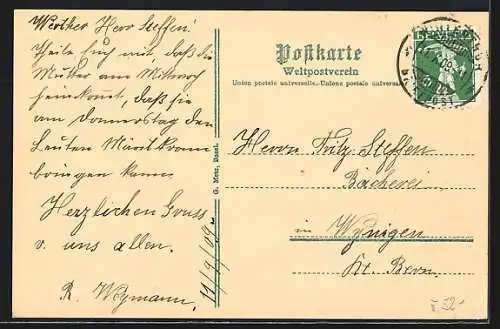 Werther Herr Steffen!
Theile Euch mit, daß die
Mutter am Mittwoch
heimkommt, daß sie
am Donnerstag den
Leuten
bringen kann.
Herzlichen Gruss
v. uns allen.
R. Wegmann.
11/9/09.
G. Metz, Basel.
Postkarte
Weltpostverein
Union postale universelle.-Unione postale universale
Herrn Fritz Steffen
Bäckerei
in Wynigen
Kt. Bern.